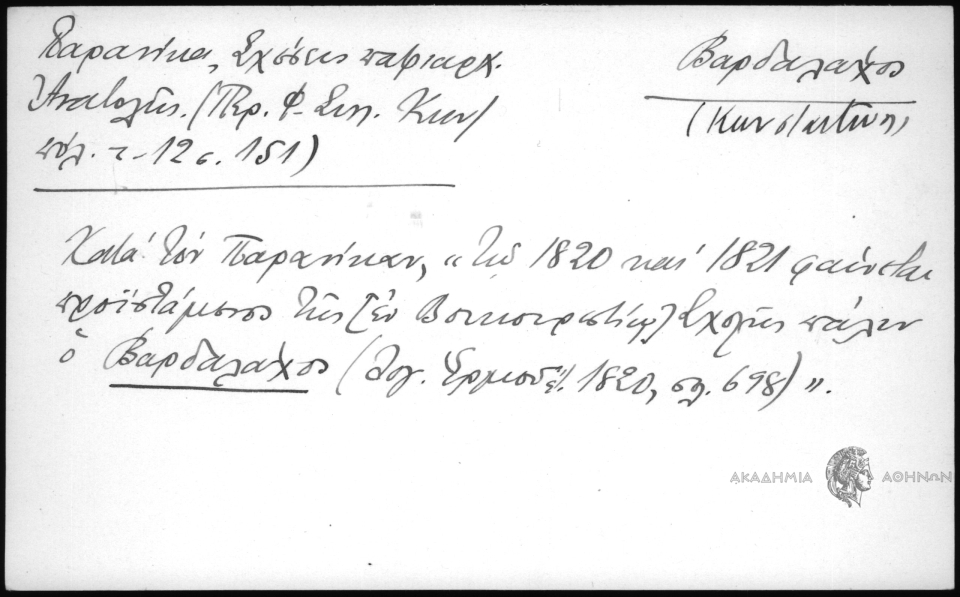 Παρανίκα, Σχέσεις πατριαρχ.
Ἀνατολῆς. (Περ. Φ. Συλ. Κων/
πόλ. τ. 12 σ. 151)
Βαρδαλάχος
(Κωνσταντῖνος)
Κατά τόν Παρανίκαν, «Τῷ 1820 καί 1821 φαίνεται
προϊστάμενος τῆς [ἐν Βουκουρεστίῳ] Σχολῆς πάλιν
ὁ Βαρδαλάχος (Λογ. Ἑρμῆς 1820, σελ. 698)».
ΑΚΑΔΗΜΙΑ ΑΘΗΝΩΝ